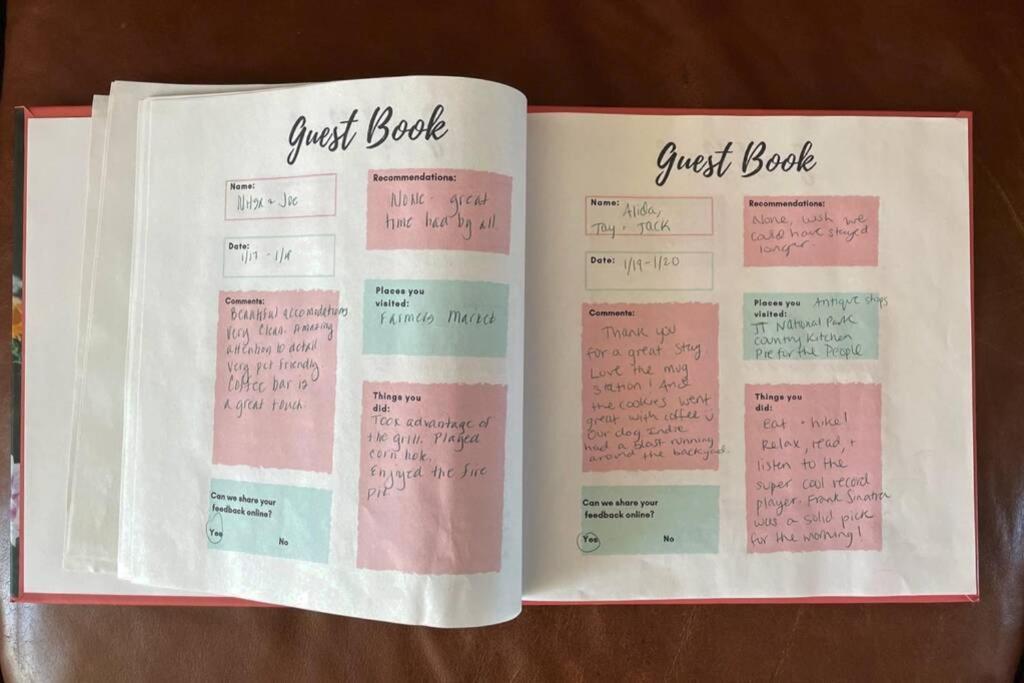 Guest Book
Name:
& Joe
Date:
1/17 - 1/19
Comments:
Beautiful accomodations
very clean. Amazing
attention to detail
Very pet friendly.
Coffee bar is
a great touch.
Can we share your
feedback online?
Yes
No
Recommendations:
None - great
time had by all.
Places you
visited:
Farmers Market
Things you
did:
Took advantage of
the grill. Played
corn hole.
Enjoyed the fire
pit
Guest Book
Name: Alida,
Jay + Jack
Date: 1/19-1/20
Comments:
Thank you
for a great stay.
Love the mug
station! And
the cookies went
great with coffee
our dog Indie
had a blast running
around the backyard.
Can we share your
feedback online?
Yes
No
Recommendations:
None, wish we
could have stayed
longer.
Places you Antique shops
visited:
National Park
Country Kitchen
Pie for the People
Things you
did:
Eat + hike!
Relax, read, +
listen to the
super cool record
player. Frank Sinatra
was a solid pick
for the morning!